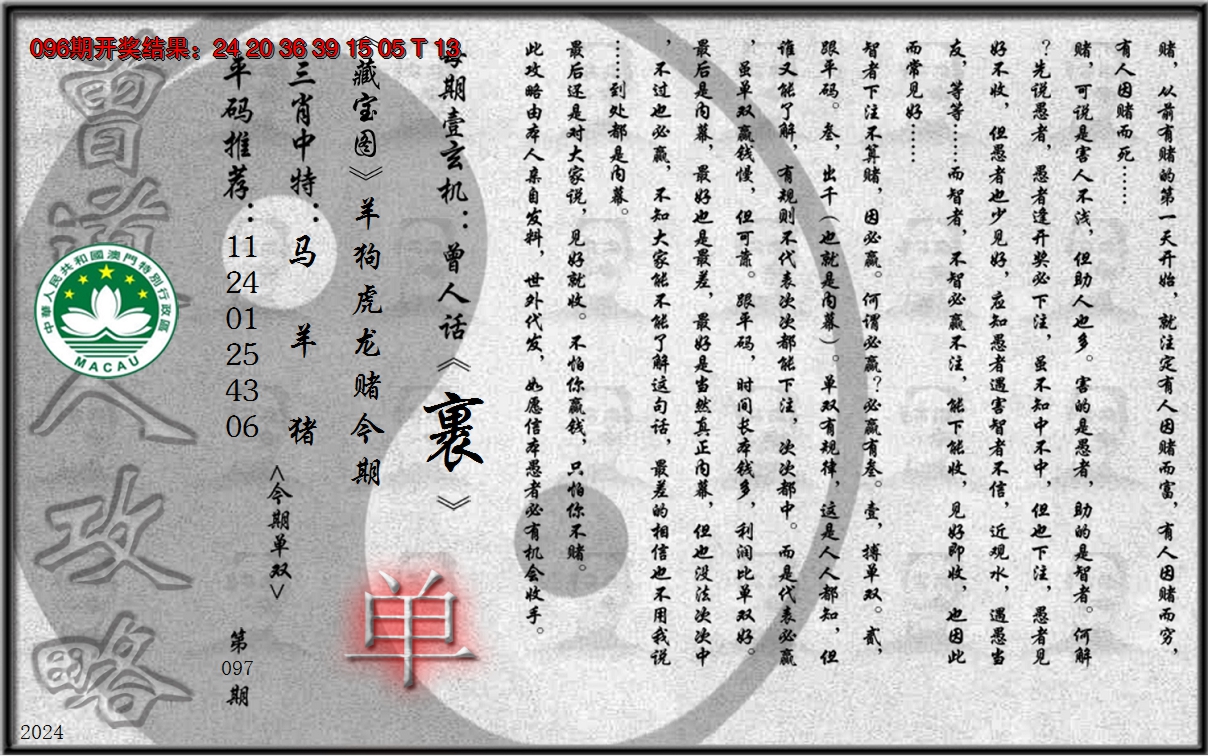 096期开奖结果：24 20 36 39 15 05 T 13
赌，从前有赌的第一天开始，就注定有人因赌而富，有人因赌而穷，
有人因赌而死……
赌，可说是害人不浅，但助人也多。害的是愚者，助的是智者。何解
？先说愚者，愚者逢开奖必下注，虽不知中不中，但也下注，愚者见
好不收，但愚者也少见好，应知愚者遇害智者不信，近观水，遇愚当
友，等等……而智者，不智必赢不注，能下能收，见好即收，也因此
而常见好……
智者下注不算赌，因必赢。何谓必赢？必赢有叁。壹，搏单双。贰，
跟平码。叁，出千（也就是内幕）。单双有规律，这是人人都知，但
谁又能了解，有规则不代表次次都能下注，次次都中。而是代表必赢
，虽单双赢钱慢，但可靠。跟平码，时间长本钱多，利润比单双好。
最后是内幕，最好也是最差，最好是当然真正内幕，但也没法次次中
，不过也必赢，不知大家能不能了解这句话，最差的相信也不用我说
……到处都是内幕。
最后还是对大家说，见好就收。不怕你赢钱，只怕你不赌。
此攻略由本人亲自发料，世外代发，如愿信本愚者必有机会收手。
每期壹玄机：曾人话《裹》
《藏宝图》羊狗虎龙赌今期
单
三肖中特：马 羊 猪
<今期单双>
平码推荐：11 24 01 25 43 06
第
097
期
曾道人攻略
中華人民共和國澳門特別行政區
MACAU
2024